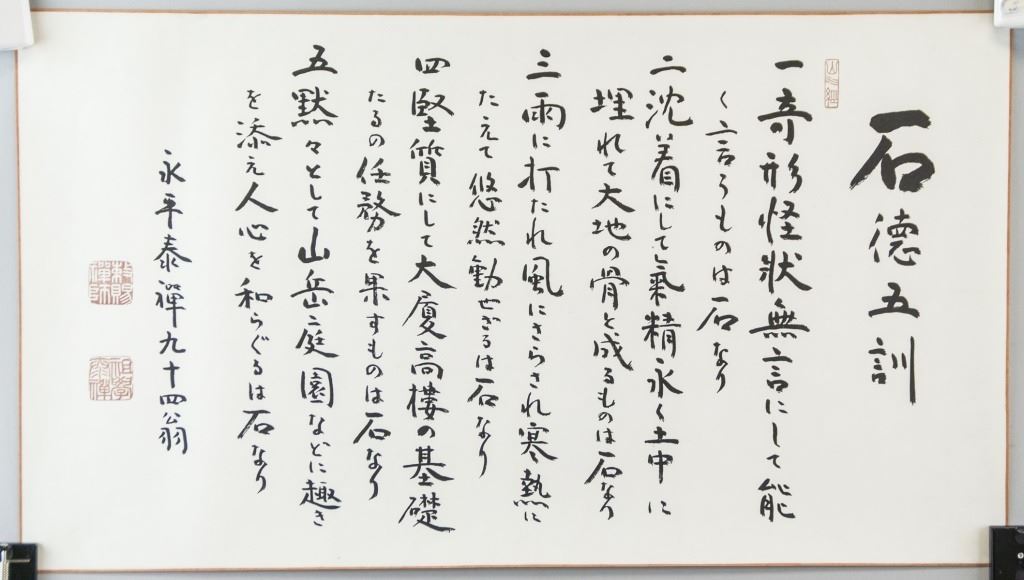 石德五訓
一奇形怪状無言にして能
く言うものは石なり
二沈着にして氣精永く土中に
埋れて大地の骨と成るものは石なり
三雨に打たれ風にさらされ寒熱に
たえて悠然動せざるは石なり
四堅質にして大廈高樓の基礎
たるの任務を果すものは石なり
五黙々として山岳庭園などに趣き
を添え人心を和らぐるは石なり
永平泰禅九十四翁
勅賜
禅師